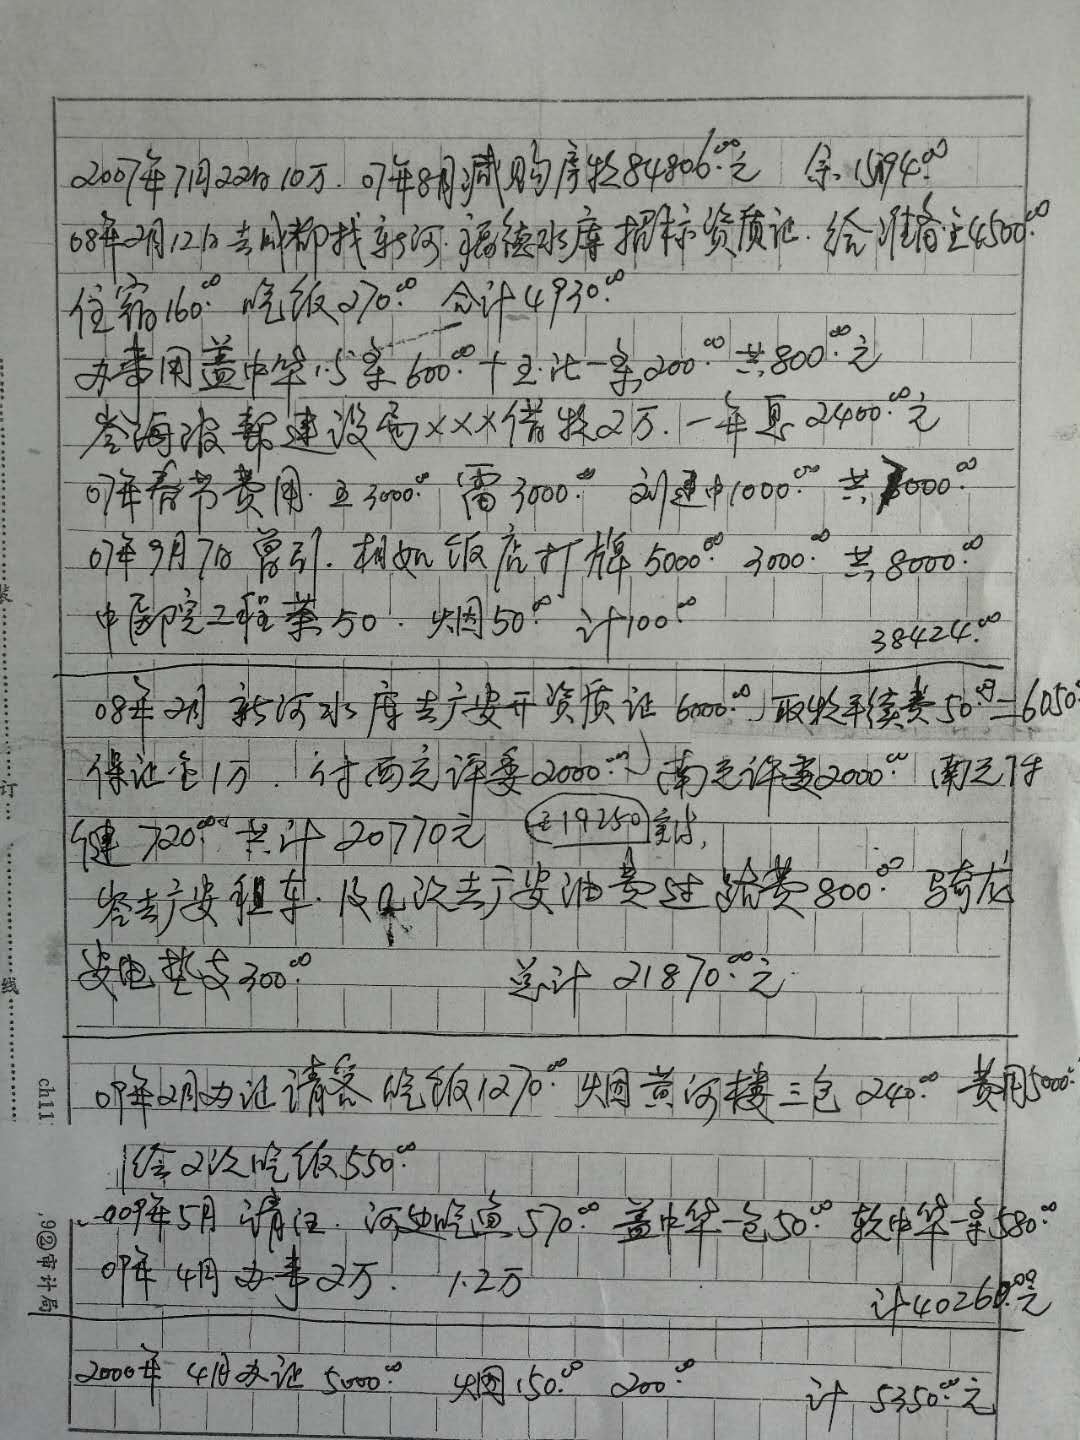 2007年7月22日10万. 07年8月减购房款84806.00元 余15194.00
08年2月12日去成都找新河.福德水库招标资质证.给准备金4500.00
住宿160.00 吃饭270.00 合计4930.00
办事用盖中华1.5条600.00+玉.比一条200.00共800.00元
海波帮建设局×××借款2万.一年息2400.00元
07年春节费用.王3000.00 雷3000.00 刘建中1000.00 共7000.00
07年9月7日曾引.相如饭店打牌5000.00 3000.00共8000.00
中医院工程茶50.烟50.00 计100.00
38424.00
08年2月新河水库去广安开资质证6000.00取款手续费50.00=6050.00
保证金1万.付西充评委2000.00南充评委2000.00 南充付
健720.00共计20770元 19250
去广安租车.及几次去广安油费过路费800.00 马奇龙
安电垫支300.00 总计21870.00元
09年2月办证请客吃饭1270.00烟黄河楼三包240.00 费用5000.00
给2次吃饭550.00
2009年5月请汪.河边吃鱼570.00盖中华一包50.00软中华一条580.00
09年4月办事2万. 1.2万
计40260.00元
2000年4月办证5000.00 烟150.00 200.00 计5350.00元
装
订
线
ch11
.92审计局